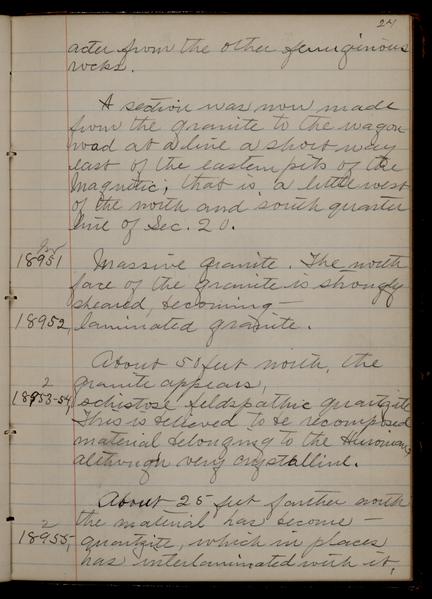 24
acter from the other ferruginous
rocks.
A section was now made
from the granite to the wagon
road at a line a short way
east of the eastern pits of the
magnetic; that is a little west
of the north and south quarter
line of Sec. 20.
18951 Massive granite. The north
face of the granite is strongly
sheared, becoming—
18952, laminated granite.
About 50 feet north, the
2
granite appears,
18953-54, schistose feldspathic quartzite
This is believed to be recomposed
material belonging to the Huronian,
although very crystalline.
About 25 feet farther north
2
the material has become—
18955, quartzite, which in places
has interlaminated with it,